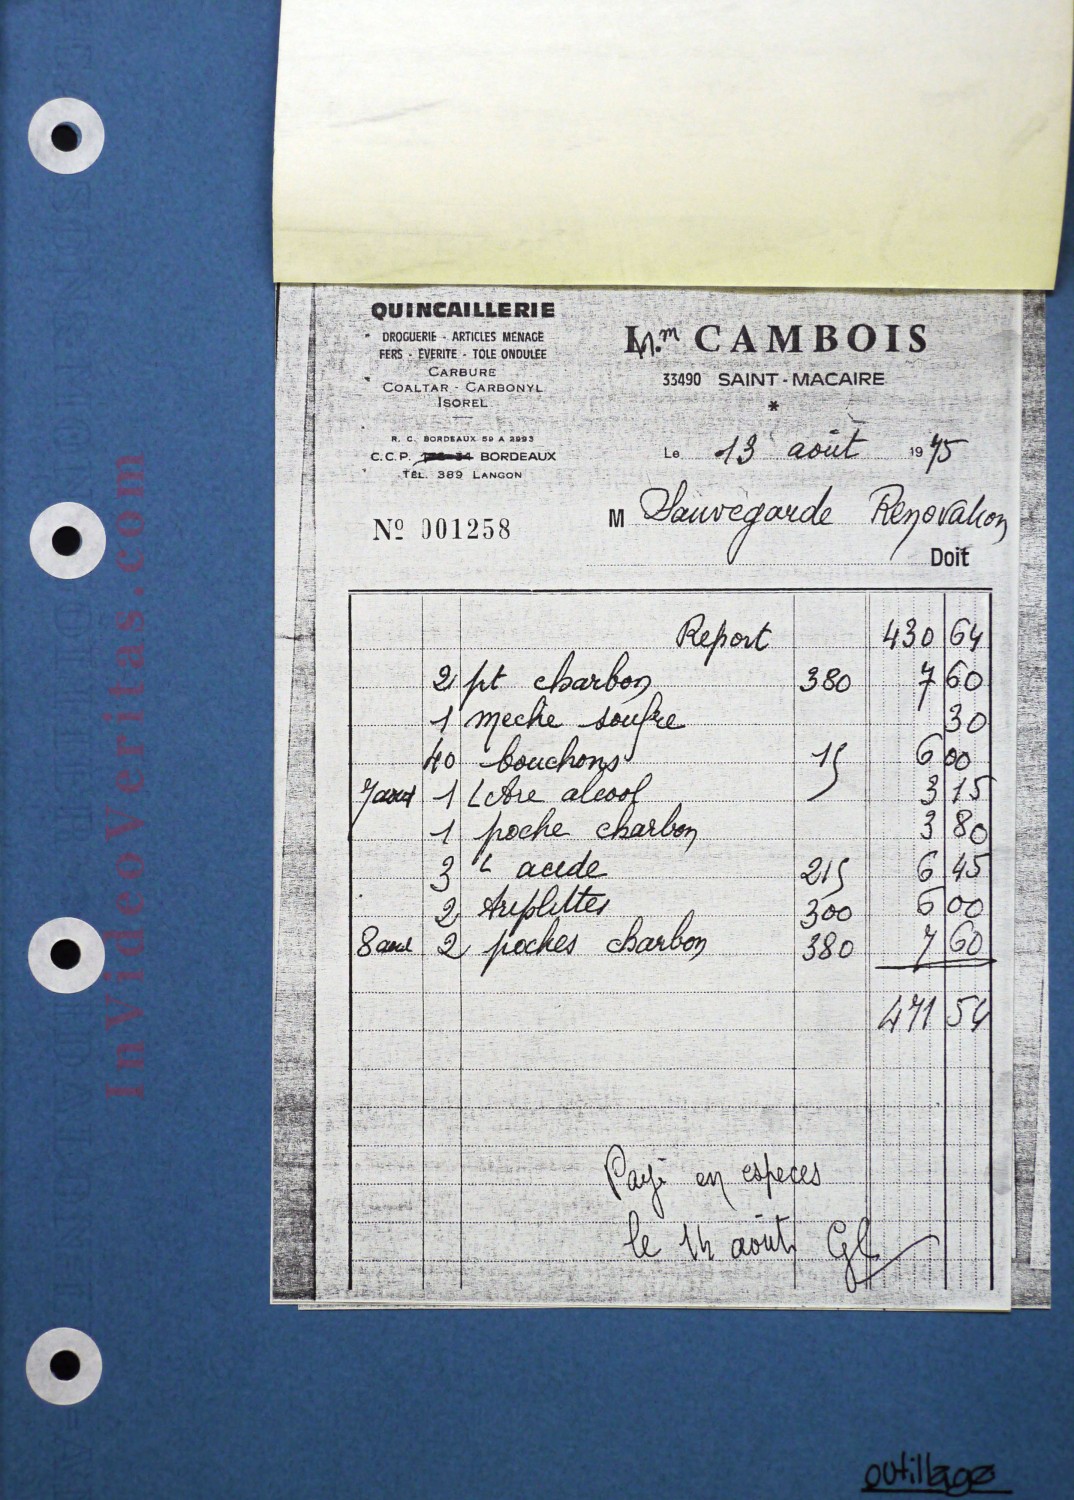 QUINCAILLERIE
DROGUERIE - ARTICLES MENAGE
FERS - EVERITE - TOLE ONDULEE
CARBURE
COALTAR - CARBONYL
ISOREL
R. C. BORDEAUX 59 A 2993
C.C.P. BORDEAUX
TÉL. 389 LANGON
Nº 001258
CAMBOIS
33490 SAINT-MACAIRE
*
Le 13 août 1975
M Sauvegarde Renovation
Doit
Report 430 64
2 pt charbon 380 7 60
1 meche soufre 30
40 bouchons 15 6 00
7 aout 1 Litre alcool 3 15
1 poche charbon 3 80
3 L acide 215 6 45
2 300 6 00
8 aout 2 poches charbon 380 7 60
471 54
Payé en especes
le 14 août GL
outillage
InVideoVeritas.com